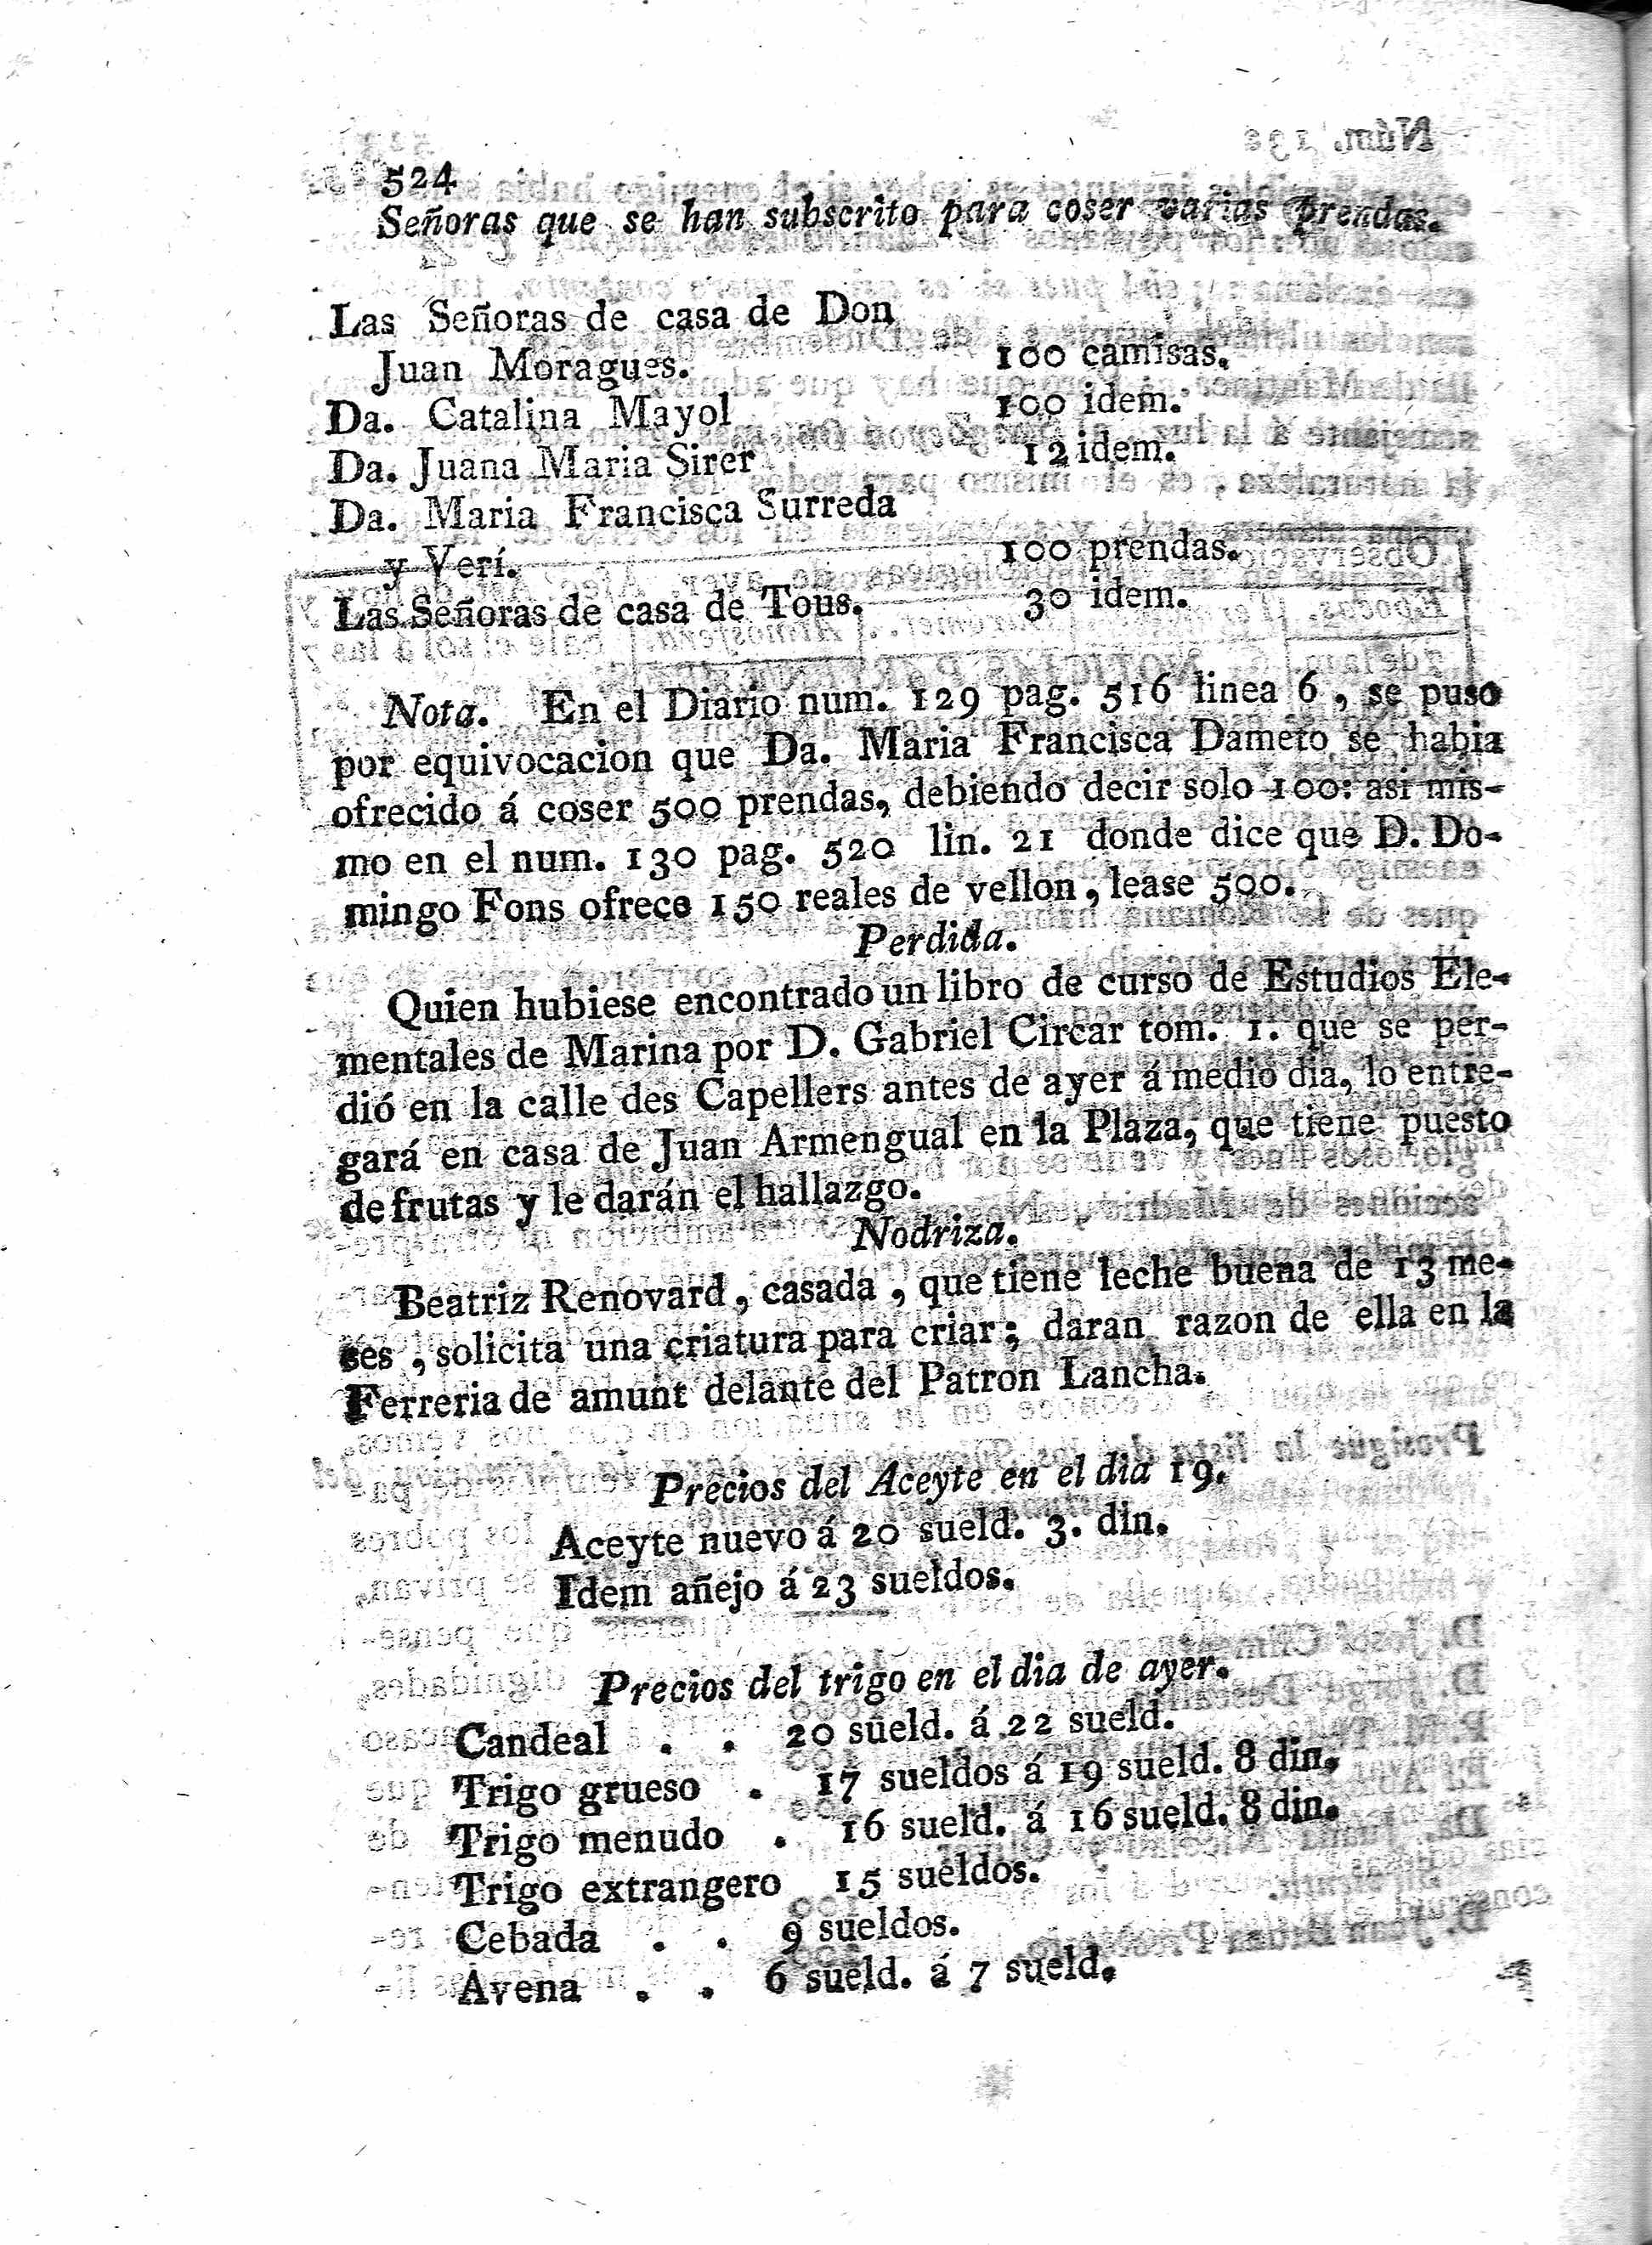 524
Señoras que se han subscrito para coser varias prendas.
Las Señoras de casa de Don
Juan Moragues. 100 camisas.
Da. Catalina Mayol 100 idem.
Da. Juana Maria Sirer 12 idem.
Da. Maria Francisca Surreda
y Verí. 100 prendas.
Las Señoras de casa de Tous. 30 idem.
Nota. En el Diario num. 129 pag. 516 linea 6, se puso
por equivocacion que Da. Maria Francisca Dameto se habia
ofrecido á coser 500 prendas, debiendo decir solo 100: asi mis-
mo en el num. 130 pag. 520 lin. 21 donde dice que D. Do-
mingo Fons ofrece 150 reales de vellon, lease 500.
Perdida.
Quien hubiese encontrado un libro de curso de Estudios Ele-
mentales de Marina por D. Gabriel Circar tom. 1. que se per-
dió en la calle des Capellers antes de ayer á medio dia, lo entre-
gará en casa de Juan Armengual en la Plaza, que tiene puesto
de frutas y le darán el hallazgo.
Nodriza.
Beatriz Renovard, casada, que tiene leche buena de 13 me-
ses, solicita una criatura para criar; darán razon de ella en la
Ferreria de amunt delante del Patron Lancha.
Precios del Aceyte en el dia 19.
Aceyte nuevo á 20 sueld. 3. din.
Idem añejo á 23 sueldos.
Precios del trigo en el dia de ayer.
Candeal . . 20 sueld. á 22 sueld.
Trigo grueso . 17 sueldos á 19 sueld. 8 din.
Trigo menudo . 16 sueld. á 16 sueld. 8 din.
Trigo extrangero 15 sueldos.
Cebada . . 9 sueldos.
Avena . . 6 sueld. á 7 sueld.